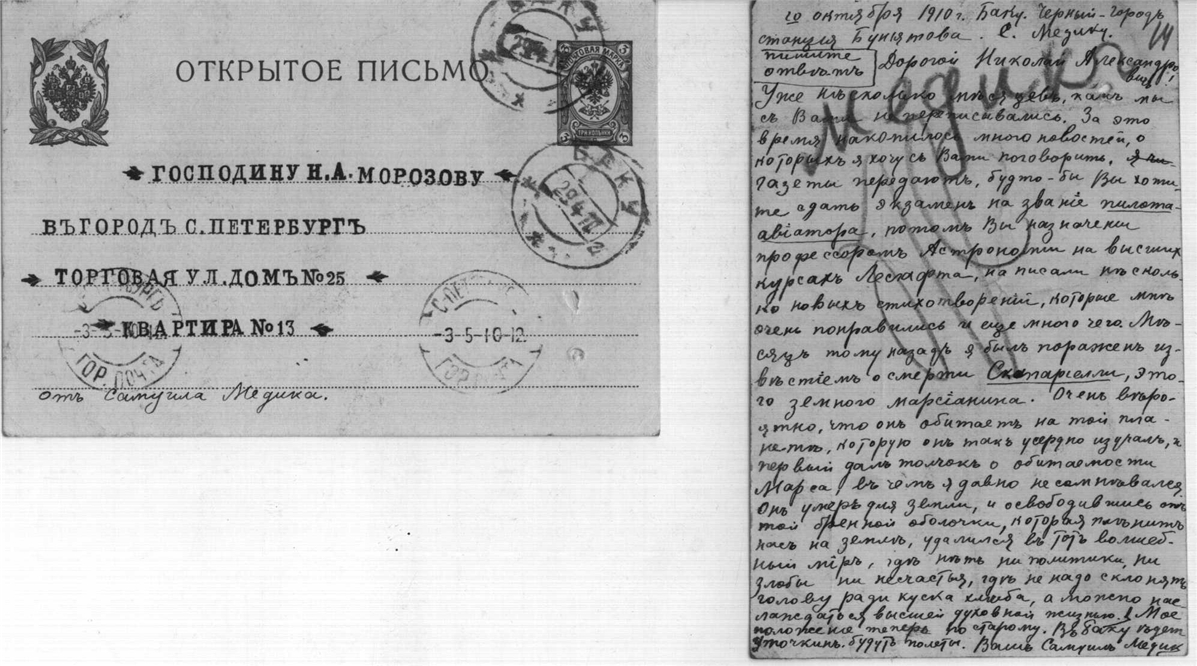 ОТКРЫТОЕ ПИСЬМО
ПОЧТОВАЯ МАРКА
3 3
ТРИ КОПѢЙКИ
БАКУ
29 4 10
БАКУ
29 4 10
2
ГОСПОДИНУ Н.А. МОРОЗОВУ
ВЪ ГОРОДЪ С. ПЕТЕРБУРГЪ
ТОРГОВАЯ УЛ. ДОМЪ №25
КВАРТИРА №13
-3-5-10-12
ГОР. ПОЧТА
-3-5-10-12
ГОР. ПОЧТА
отъ Самуила Медика.
октября 1910 г. Баку. Черный-Городъ
станція Бунятова. С. Медику.
14
пишите
отвѣтъ
Дорогой Николай Александро
вичъ!
Медикъ
Уже нѣсколько мѣсяцевъ, какъ мы
съ Вами не переписывались. За это
время накопилось много новостей, о
которыхъ я хочу съ Вами поговорить.
газеты передаютъ, будто-бы Вы хоти-
те сдать экзаменъ на званіе пилота-
авіатора, потомъ Вы назначены
профессоромъ Астрономіи на высших
курсахъ Лесгафта, написали нѣсколь
ко новыхъ стихотвореній, которые мнѣ
очень понравились и еще много чего. Мѣ-
сяцъ тому назадъ я былъ пораженъ из-
вѣстіемъ о смерти Скапарелли, это-
го земного марсіанина. Очень вѣро-
ятно, что онъ обитаетъ на той пла-
нетѣ, которую онъ такъ усердно изучалъ, и
первый далъ толчокъ о обитаемости
Марса, въ чемъ я давно не сомнѣвался.
Онъ умеръ для земли, и освободившись отъ
той бренной оболочки, которая плѣнитъ
насъ на землѣ, удалился въ тотъ волшеб-
ный міръ, гдѣ нѣтъ ни политики, ни
злобы ни несчастья, гдѣ не надо склонять
голову ради куска хлѣба, а можно нас
лаждаться высшей духовной жизнью. Мое
положеніе теперь по старому. Въ Баку ѣдетъ
Уточкинъ. будутъ полеты. Вашъ Самуилъ Медик